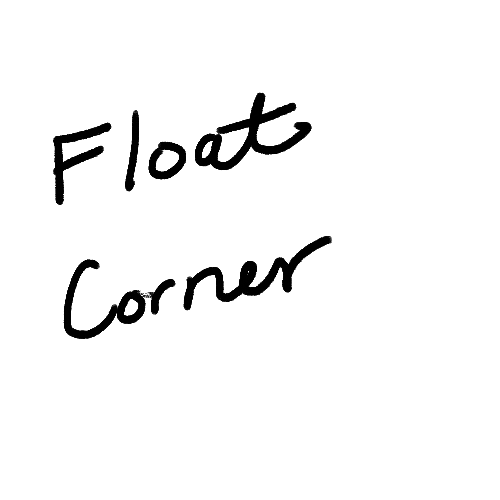 Float
Corner